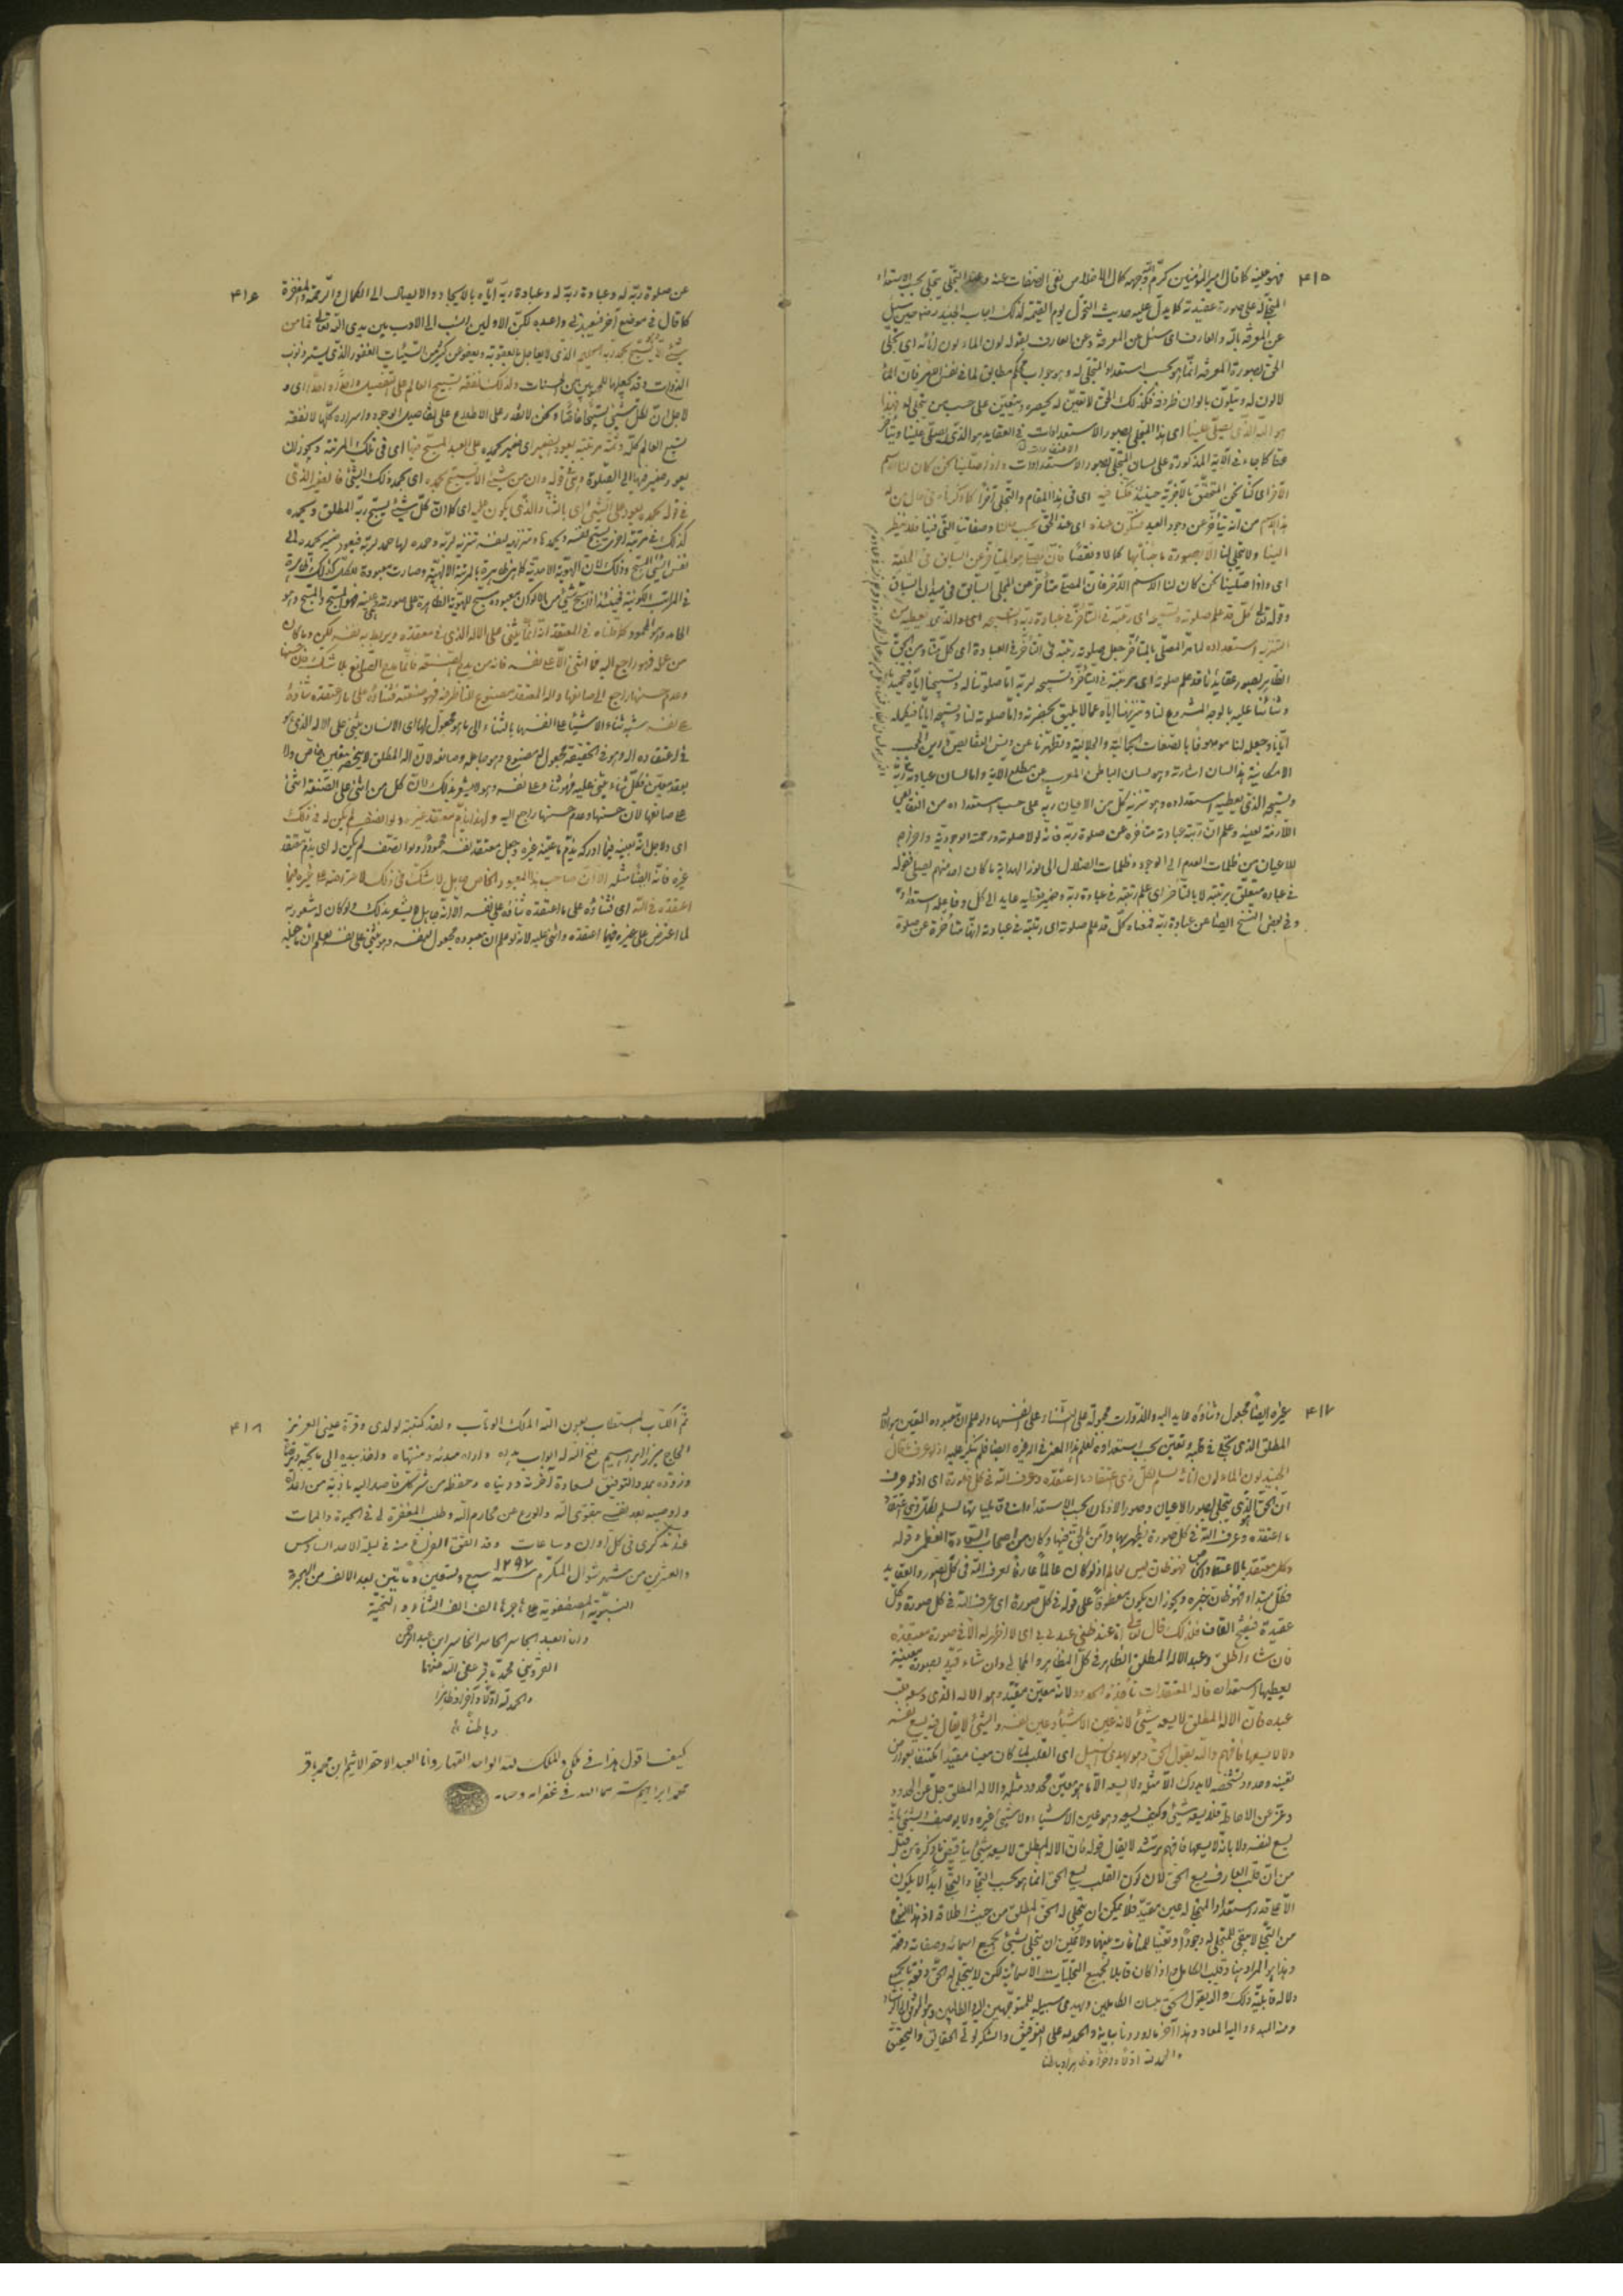 ۴۱۵
فهو عينه كما قال امير المؤمنين كرّم اللّه وجهه كمال الاخلاص نفى الصفات عنه وهذا التجلّى يتجلّى بحسب الاستعداد
المتجلّى له على صورة عقيدته كما يدلّ عليه حديث التحوّل يوم القيمة لذلك اجاب الجنيد رضى حين سئل
عن المعرفة باللّه والعارف اى سئل عن المعرفة وعن العارف بقوله لون الماء لون انائه اى تجلّى
الحق بصورة المعرفة انّما هو بحسب استعداد المتجلّى له وهو جواب محكم مطابق لما فى نفس الامر فان الماء
لا لون له ويتلوّن بالوان ظروفه فكذلك الحق لا تعيّن له يحصره ويتعيّن على حسب من يتجلّى له فهذا
هو اللّه الذى يصلّى علينا اى هذا المتجلّى بصور الاستعدادات فى العقايد هو الذى يصلّى علينا ويتأخر
عنّا كما جاء فى الآية المذكورة على لسان المتجلّى بصور الاستعدادات واذا صلّينا نحن كان لنا الاسم
الآخر اى كنّا نحن المتحقّق بالآخريّة حينئذ فكنّا فيه اى فى هذا المقام والتجلّى آخرا كما ذكرناه فى حال من له
هذا الاسم من انّه يتأخّر عن وجود العبد فنكون عنده اى عند الحق بحسب حالنا وصفاتنا التى فينا فلا ينظر
الينا ولا يتجلّى لنا الا بصورة ما جئناه بها كمالا ونقصًا فانّ المصلّى هو المتأخر عن السابق فى الحلبة
اى واذا صلّينا نحن كان لنا الاسم الآخر فانّ المصلّى متأخّر عن المجلّى السابق فى ميدان السباق
وقوله تعالى كلّ قد علم صلوته وتسبيحه اى رتبته فى التأخّر فى عبادة ربّه وتسبيحه اى والذى يعطيه من
التنزيه استعداده لما مرّ المصلّى بالمتأخّر جعل صلوته رتبته فى التأخّر فى العبادة اى كل منّا ومن الحق
الظاهر بصور عقايدنا قد علم صلوته اى مرتبته فى التأخّر وتسبيحه لربّه امّا صلوتنا له وتسبيحنا ايّاه فتحميدنا
وثنائنا عليه بالوجه المشروع لنا وتنزيهنا ايّاه عمّا لا يليق بحضرته وامّا صلوته لنا وتسبيحه ايّانا فتكميله
ايّانا وجعله لنا موصوفًا بالصفات الجماليّة والجلاليّة وتطهيرنا عن دنس النقائص ورين الحجب
الامكانية هذا لسان اشارته وهو لسان الباطن المعرب عن مطلع الآية وامّا لسان عبارته
وتسبيحه الذى يعطيه استعداده وهو تنزيه كل من الاعيان ربّه على حسب استعداده من النقائص
اللازمة لعينه وعلم انّ رتبة عبادته متأخّرة عن صلوة ربّه فانّه لولا صلوته ورحمته الوجودية واخراجه
للاعيان من ظلمات العدم الى الوجود وظلمات الضلال الى نور الهداية ما كان احد منهم يصلّى فقوله
فى عبادته متعلّق برتبته لا بالتأخر اى علم رتبته فى عبادة ربه وضمير يعطيه عايد الى الكل وفاعله استعداده
وفى بعض النسخ ايضا عن عبادة ربّه فمعناه كلّ قد علم صلوته اى رتبته فى عبادته انّها متأخّرة عن صلوة
۴۱۶
عن صلوة ربّه له وعبادة ربّه له وعبادة ربّه ايّاه بالايجاد والايصال الى الكمال والرّحمة والمغفرة
كما قال فى موضع آخر فيعبدنى واعبده لكنّ الاولين انسب الى الادب بين يدى اللّه تعالى فما من
شئ الّا يسبّح بحمد ربّه الحليم الذى لا يعاجل بالعقوبة ويعفو عن كثير من السّيئات الغفور الذى يستر ذنوب
الذوات وقد يجعلها للمحبوبين من الحسنات ولذلك لا نفقه تسبيح العالم على التفصيل واحدًا واحدًا اى و
لاجل انّ لكل شئ تسبيحًا خاصًّا ونحن لا نقدر على الاطلاع على تفاصيل الوجود واسراره كلّها لا نفقه
تسبيح العالم كلّه وثمّة مرتبة يعود الضمير اى ضمير بحمده على العبد المسبّح فيها اى فى تلك المرتبة ويجوز ان
يعود ضمير فيها الى الصّلوة فى قوله وان من شئ الّا يسبّح بحمده اى بحمد ذلك الشئ فالضمير الذى
فى قوله بحمده يعود على الشئ اى بالثناء الذى يكون عليه اى كما انّ كلّ شئ يسبّح ربّه المطلق ويحمده
كذلك فى مرتبة اخرى يسبّح نفسه ويحمدها وتنزيهه لنفسه تنزيه لربّه وحمده لها حمد لربّه فيعود ضمير بحمده الى
نفس الشئ المسبّح وذلك لانّ الهويّة الاحديّة كما هى ظاهرة بالمرتبة الالهيّة وصارت معبودة للكل كذلك ظاهرة
فى المراتب الكونيّة فحينئذ اذا سبّح شئ من الاكوان معبوده يسبّح للهويّة الظاهرة على صورة عينه فهو المسبّح والمسبّح وهو
الحامد وهو المحمود كما قلناه فى المعتقد انّه انّما يثنى على الاله الذى فى معتقده وربط به نفسه لكن وما كان
من عمله فهو راجع اليه فما اثنى الّا على نفسه فانّه من مدح الصنعة فانّما مدح الصّانع بلا شك فانّ حسنها
وعدم حسنها راجع الى صانعها واله المعتقد مصنوع للناظر فيه فهو صنعته فثناؤه على ما اعتقده ثناؤه
على نفسه
فى اعتقاده اله وهو فى الحقيقة مجعول مصنوع وهو جاعله وصانعه لانّ اله المطلق لا ينحصر بتعيين خاصّ ولا
بعقد معيّن فكلّ ثناء يثنى عليه فهو ثناء على نفسه وهو لا يشعر بذلك لانّ كل من اثنى على الصّنعة اثنى
على صانعها لانّ حسنها وعدم حسنها راجع اليه ولهذا يذمّ معتقد غيره ولو انصف لم يكن له فى ذلك
اى ولاجل انّه بعينه فيما ادركه يذمّ ما عيّنه غيره وجعل معتقد نفسه محمودًا ولو انصف لم يكن له اى يذمّ معتقد
غيره فانّه ايضا مثله الّا انّ صاحب هذا المعبود الخاص جاهل بلا شك فى ذلك لاعتراضه على غيره فيما
اعتقده فى اللّه اى فثناؤه على ما اعتقده ثناؤه على نفسه الّا انّه جاهل لا يشعر بذلك ولو كان له شعور به
لما اعترض على غيره فيما اعتقده واثنى عليه لانّه لو علم ان معبوده مجعول لنفسه وهو يثنى على نفسه لعلم ان ما جعله
۴۱۷
غيره ايضًا مجعول وثناؤه عايد اليه والذوات مجبولة على الثناء على انفسها ولو علم انّ معبوده المتعيّن هو الاله
المطلق الذى تجلّى فى قلبه وتعيّن بحسب استعداده لعلم هذا المعنى فى غيره ايضا فلم ينكر عليه اذ لو عرف ما قال
الجنيد لون الماء لون انائه لسلم لكلّ ذى اعتقاد ما اعتقده وعرف اللّه فى كل صورة اى اذ لو عرف
انّ الحق هو الذى يتجلّى بصور الاعيان وصور الاذهان بحسب الاستعدادات وقابلياتها لسلم لكلّ ذى اعتقاد
ما اعتقده وعرف اللّه فى كل صورة يظهر بها وآمن بالحق فيها وكان من اصحاب السّعادة العظمى وقوله
وكل معتقد بالاعتقاد الخاص فهو ظانّ ليس بعالم اذ لو كان عالمًا عارفًا لعرف اللّه فى كل الصور والعقايد
فكلّ مبتدأ وفهو ظانّ خبره ويجوز ان يكون معطوفًا على قوله فى كل صورة اى عرف اللّه فى كل صورة وكلّ
عقيدة فلذلك قال تعالى انا عند ظنّ عبدى بى اى لا اظهر له الّا فى صورة معتقده
فان شاء اطلق وعبد الاله المطلق الظاهر فى كلّ المظاهر والمجالى وان شاء قيّد بصورة معيّنة
يعطيها استعداده فاله المعتقدات تأخذه الحدود لانّه معيّن مقيّد وهو الاله الذى وسعه قلب
عبده فانّ الاله المطلق لا يسعه شئ لانه عين الاشياء وعين نفسه والشئ لا يقال فيه يسع نفسه
ولا لا يسعها فافهم واللّه يقول الحق وهو يهدى السبيل اى القلب لمّا كان معيّنا مقيّدا مكتنفا بصور من
تعيّنه وحدود تشخّصه لا يدرك الا مثله ولا يسعه الّا ما هو معيّن محدود مثله والاله المطلق جلّ عن الحدود
وعزّ عن الاحاطة فلا يسعه شئ وكيف يسعه وهو عين الاشياء ولا شئ غيره ولا يوصف الشئ بانّه
يسع نفسه ولا بانّه لا يسعها فافهم ترشد لا يقال قوله فان الاله المطلق لا يسعه شئ يناقض ما ذكره من قبل
من انّ قلب العارف يسع الحق لانّ كون القلب يسع الحق انّما هو بحسب التجلّى والتجلّى ابدًا لا يكون
الّا على قدر استعداد المتجلّى له عين مقيّد فلا يمكن ان يتجلّى له الحق المطلق من حيث اطلاقه
من التجلّى لا يبقى للمتجلّى له وجودًا وتعيّنا للمنافات بينهما ولا يمكن ان يتجلّى لشئ بجميع اسمائه وصفاته دفعة
وهذا هو المراد هنا وقلب الكامل واذا كان قابلا لجميع التجلّيات الاسمائيّة لكن لا يتجلّى له الحق دفعة بالجميع
ولا له قابليّة ذلك واللّه يقول الحق بلسان الكاملين ويهدى سبيله للمتوجّهين اليه الطالبين وهو الموفّق للرشاد
ومنه المبدء واليه المعاد وهذا آخر ما اردنا بيانه والحمد للّه على التوفيق والشكر لولىّ الحقايق والتحقيق
والحمد للّه اوّلا وآخرا وظاهرا وباطنا
۴۱۸
تمّ الكتاب المستطاب بعون اللّه الملك الوهّاب ولقد كتبته لولدى وقرّة عينى العزيز
الحاج ميرزا ابراهيم فتح اللّه له ابواب
وزوّده بمدد التوفيق لسعادة آخرته ودنياه وحفظه من شرّ كلّ قاصد اليه باذيّة من اعداه
واوصيه بعد نفسى بتقوى اللّه والورع عن محارم اللّه وطلب المغفرة لى فى الحيوة والممات
عند تذكّرى فى كلّ اوان وساعات وقد اتفق الفراغ منه فى ليلة الاحد السادس
والعشرين من شهر شوال المكرّم سنه ۱۲۹۷ سبع وتسعين ومأتين بعد الالف من الهجرة
النبويّة المصطفوية على هاجرها الف الف الثناء والتحيّة
وانا العبد الخاسر ابن عبد الرحمن
القزوينى محمّد باقر عفى اللّه عنهما
والحمد للّه اوّلا وآخرا وظاهرًا
وباطنًا
كيف اقول هذا فى ملكى والملك للّه الواحد القهار وانا العبد الاحقر الاثيم ابن محمد باقر
محمد ابراهيم